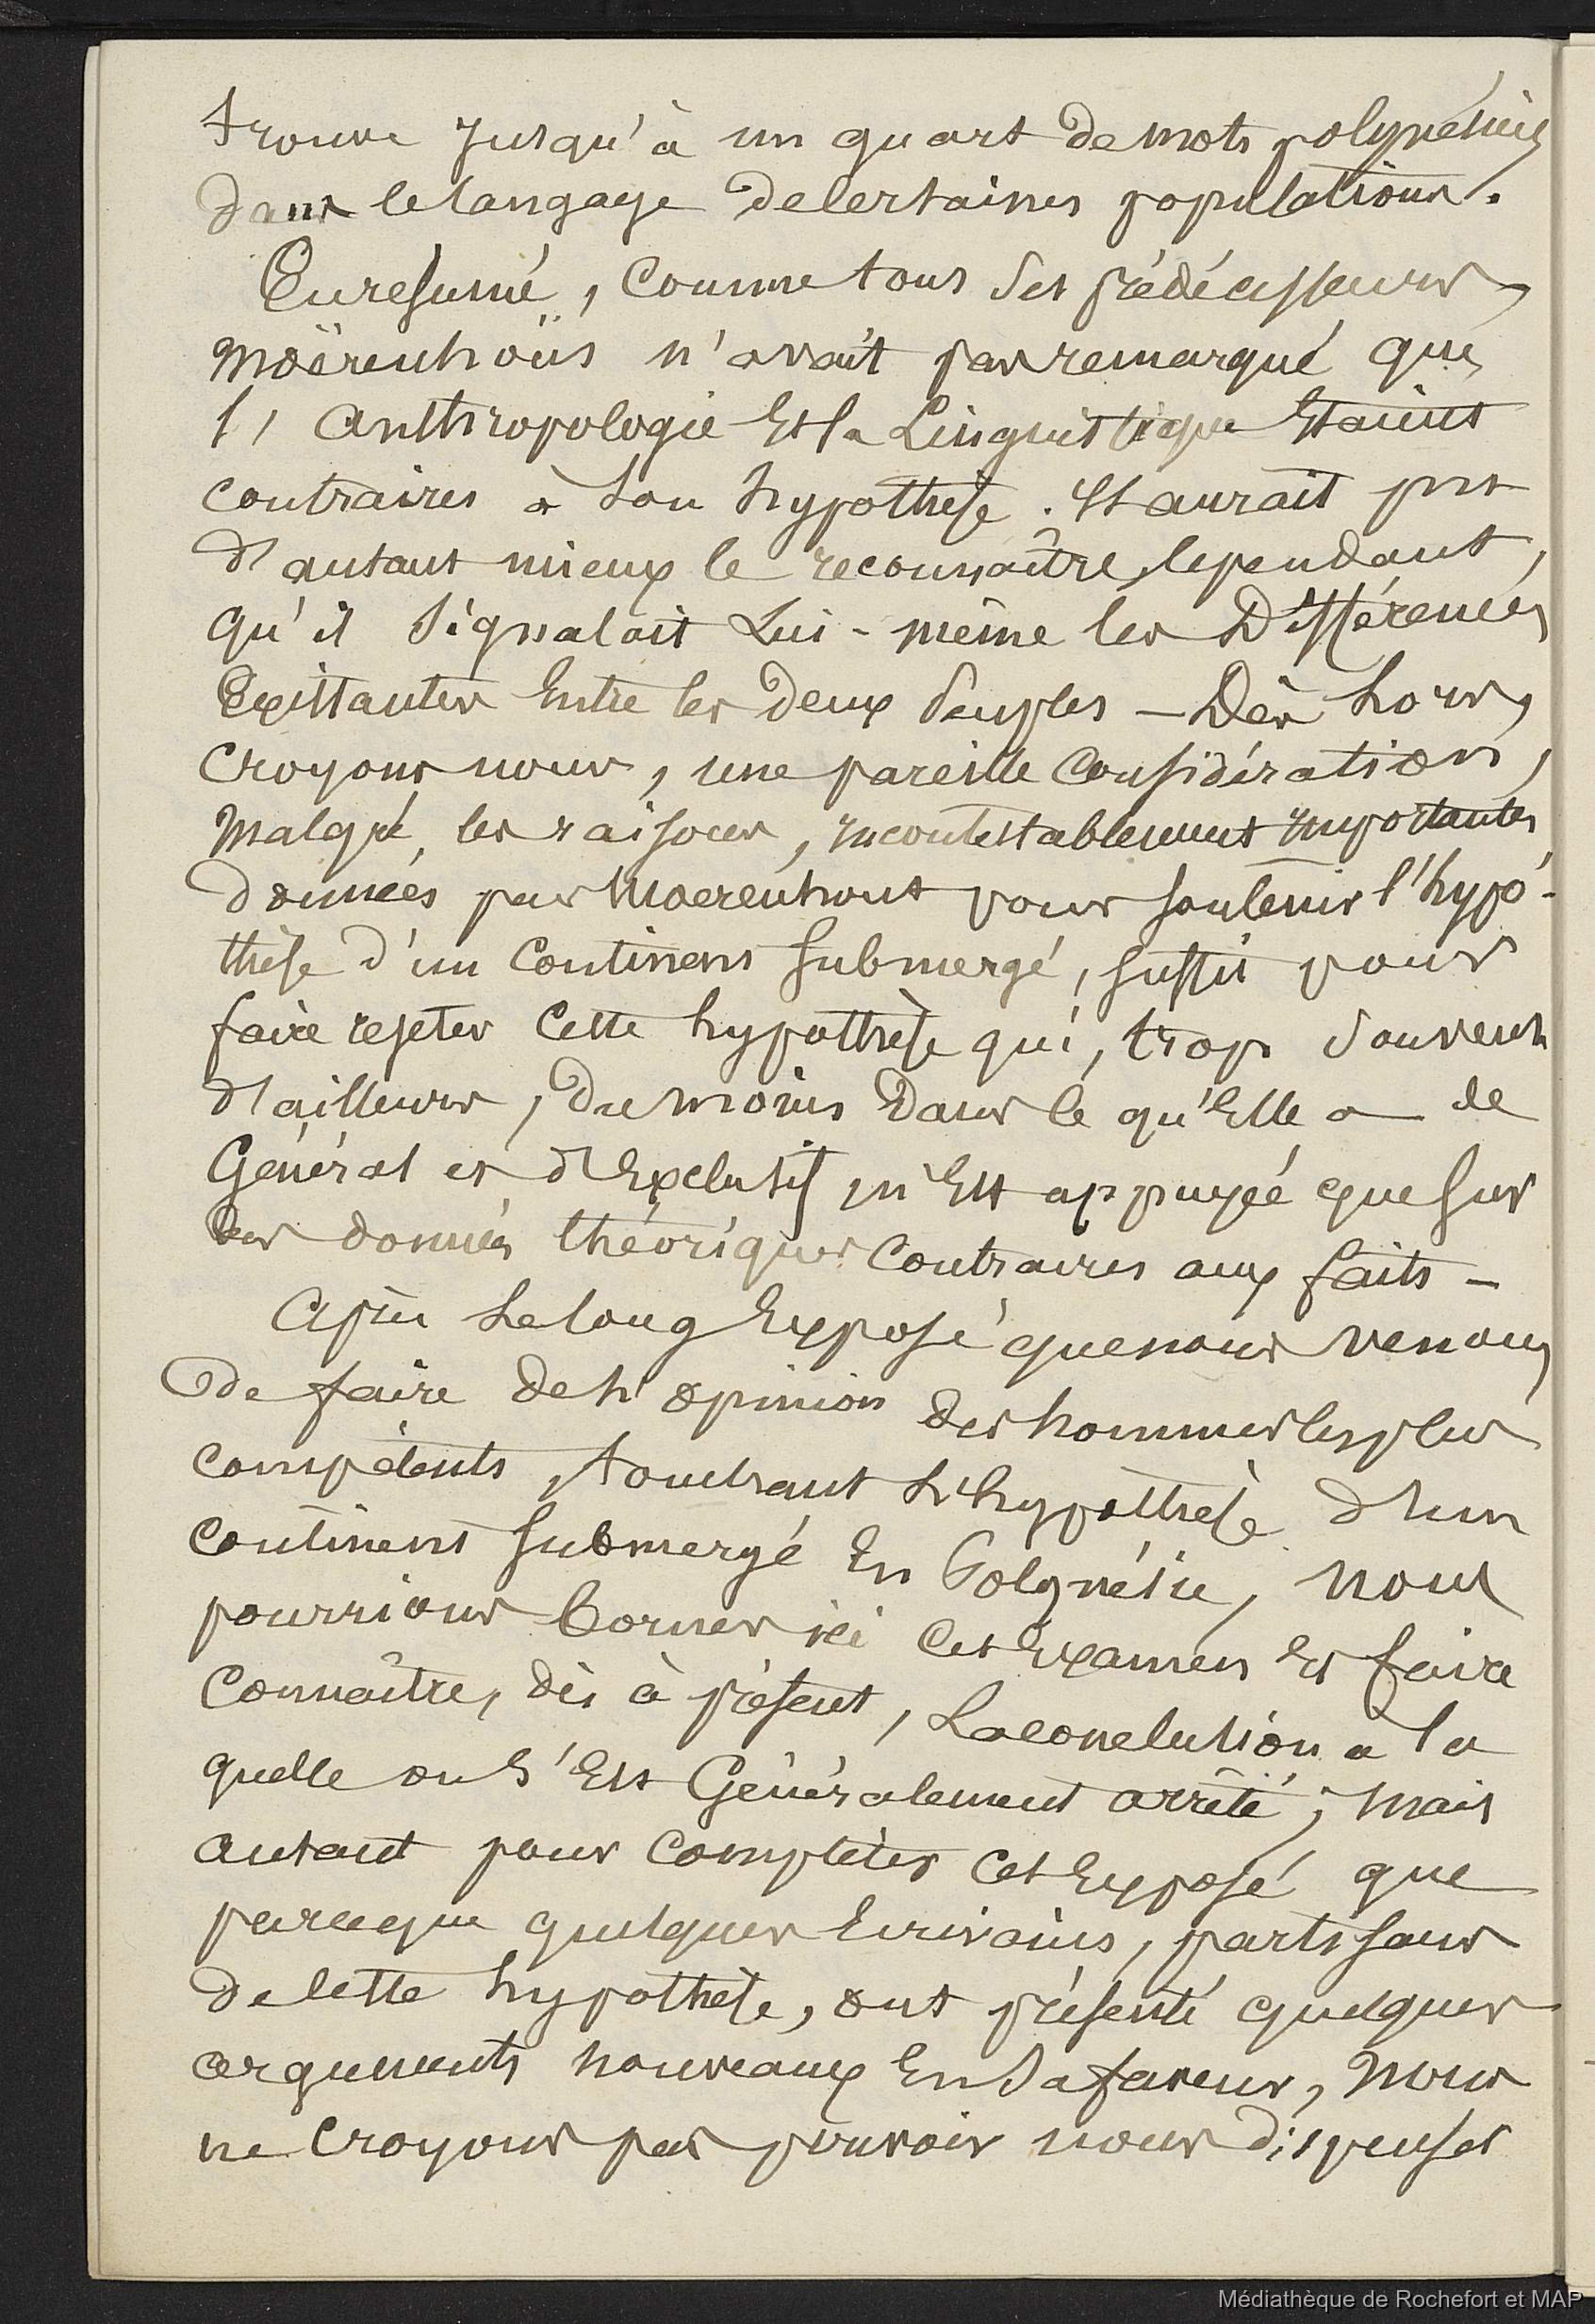 trouve jusqu'à un quart de mots polynésiens
dans le langage de certaines populations.
En resumé, comme tous ses prédécesseurs,
Moërenhoüs n'avait pas remarqué que
l'Anthropologie Et la Linguistique Etaient
contraires à son hypothèse. Il aurait pu
d'autant mieux le reconnaître, cependant,
qu'il signalait Lui-même les Différences
Existantes Entre les deux Peuples — Dès Lors,
croyons nous, une pareille considération,
Malgré les raisons, incontestablement importantes
données par Moerenhout pour soutenir l'hypo-
thèse d'un Continent submergé, suffit pour
faire rejeter cette hypothèse qui, trop souvent
d'ailleurs, Du moins Dans ce qu'Elle a de
Général et d'Exclusif, n'Est appuyée que sur
des données théoriques contraires aux faits —
Après Le long Exposé que nous venons
De faire de L'opinion des hommes les plus
compétents, touchant L'hypothèse d'un
continent submergé En Polynésie, nous
pourrions borner ici cet Examen Et faire
connaître, dès à présent, La conclusion a la
quelle on s'Est Généralement arrêté; Mais
autant pour compléter cet Exposé que
parceque quelques Ecrivains, partisans
de cette hypothèse, ont présenté quelques
arguments nouveaux En sa faveur, nous
ne croyons pas pouvoir nous dispenser
Médiathèque de Rochefort et MAP